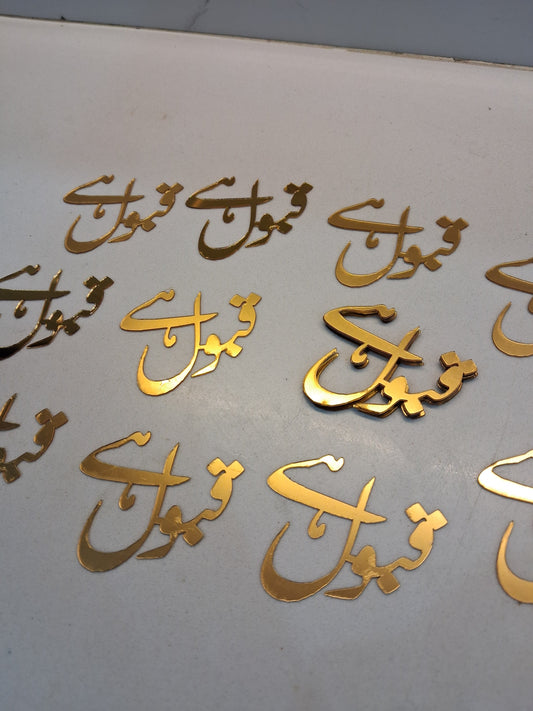 قبول ہے
قبول ہے
قبول ہے
قبول ہے
قبول ہے
قبول ہے
قبول ہے
قبول ہے